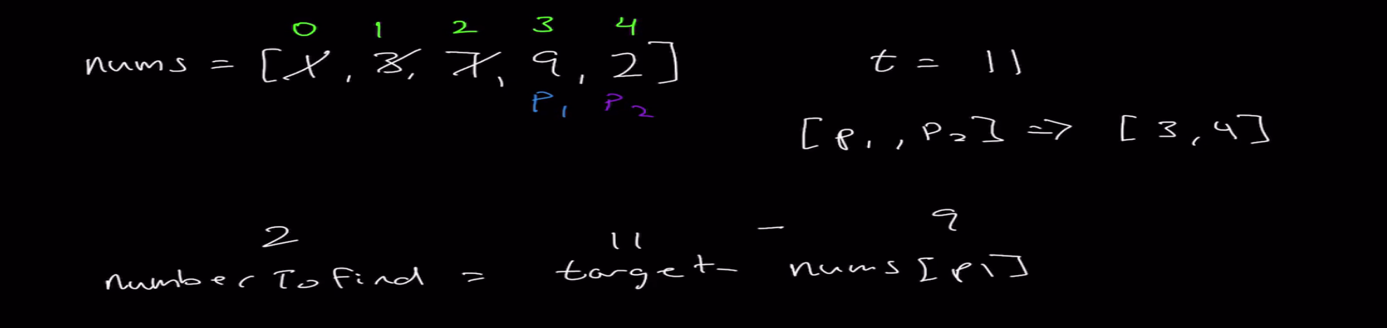 0 1 2 3 4
nums = [1, 3, 7, 9, 2]
t = 11
P1 P2
[P1, P2] => [3, 4]
2 11 - 9
numberToFind = target - nums[P1]